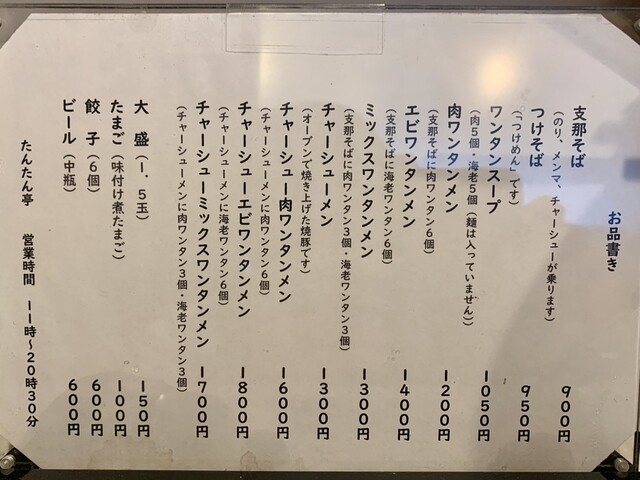 お品書き
支那そば 900円
（のり、メンマ、チャーシューが乗ります）
つけそば 950円
（「つけめん」です）
ワンタンスープ 1050円
（肉5個・海老5個（麺は入っていません））
肉ワンタンメン 1200円
（支那そばに肉ワンタン6個）
エビワンタンメン 1400円
（支那そばに海老ワンタン6個）
ミックスワンタンメン 1300円
（支那そばに肉ワンタン3個・海老ワンタン3個）
チャーシューメン 1300円
（オーブンで焼き上げた焼豚です）
チャーシュー肉ワンタンメン 1600円
（チャーシューメンに肉ワンタン6個）
チャーシューエビワンタンメン 1800円
（チャーシューメンに海老ワンタン6個）
チャーシューミックスワンタンメン 1700円
（チャーシューメンに肉ワンタン3個・海老ワンタン3個）
大盛（1.5玉） 150円
たまご（味付け煮たまご） 100円
餃子（6個） 600円
ビール（中瓶） 600円
たんたん亭 営業時間 11時～20時30分